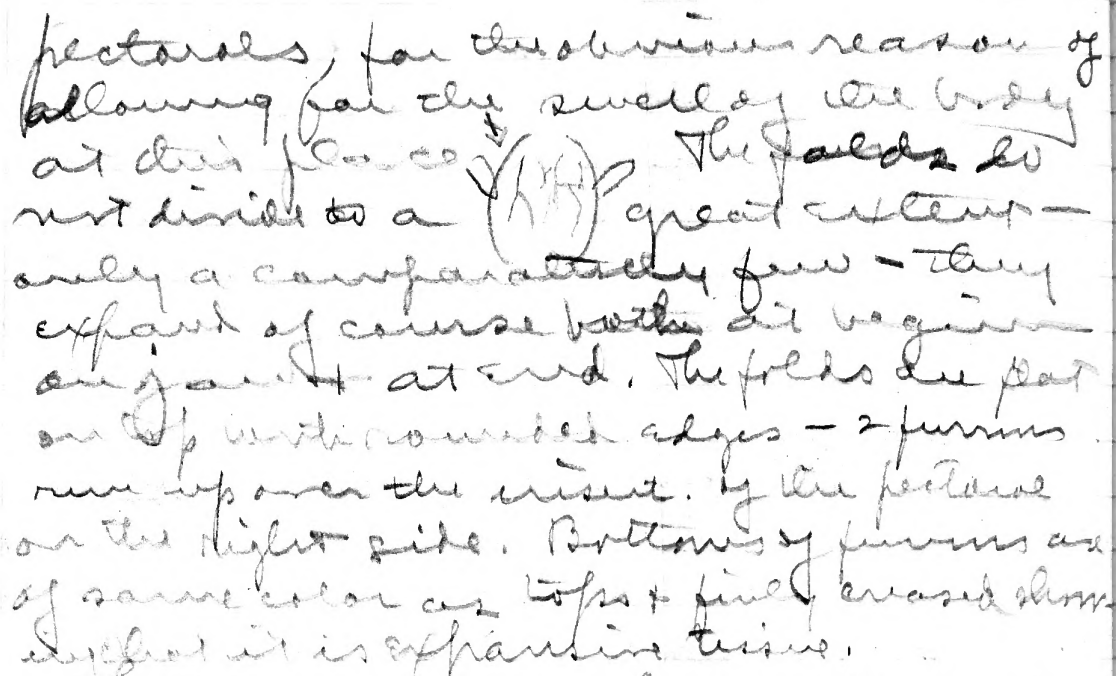 pectorals, for the obvious reason of
allowing for the swell of the body
at this place. The folds do
not divide to a great extent –
only a comparatively few – they
expand of course both at beginn
on jaw & at end. The folds are flat
on top with rounded edges – 2 furrows
run up over the insert. of the pectoral
on the right side. Bottoms of furrows are
of same color as tops & finely creased show-
ing that it is expansive tissue.